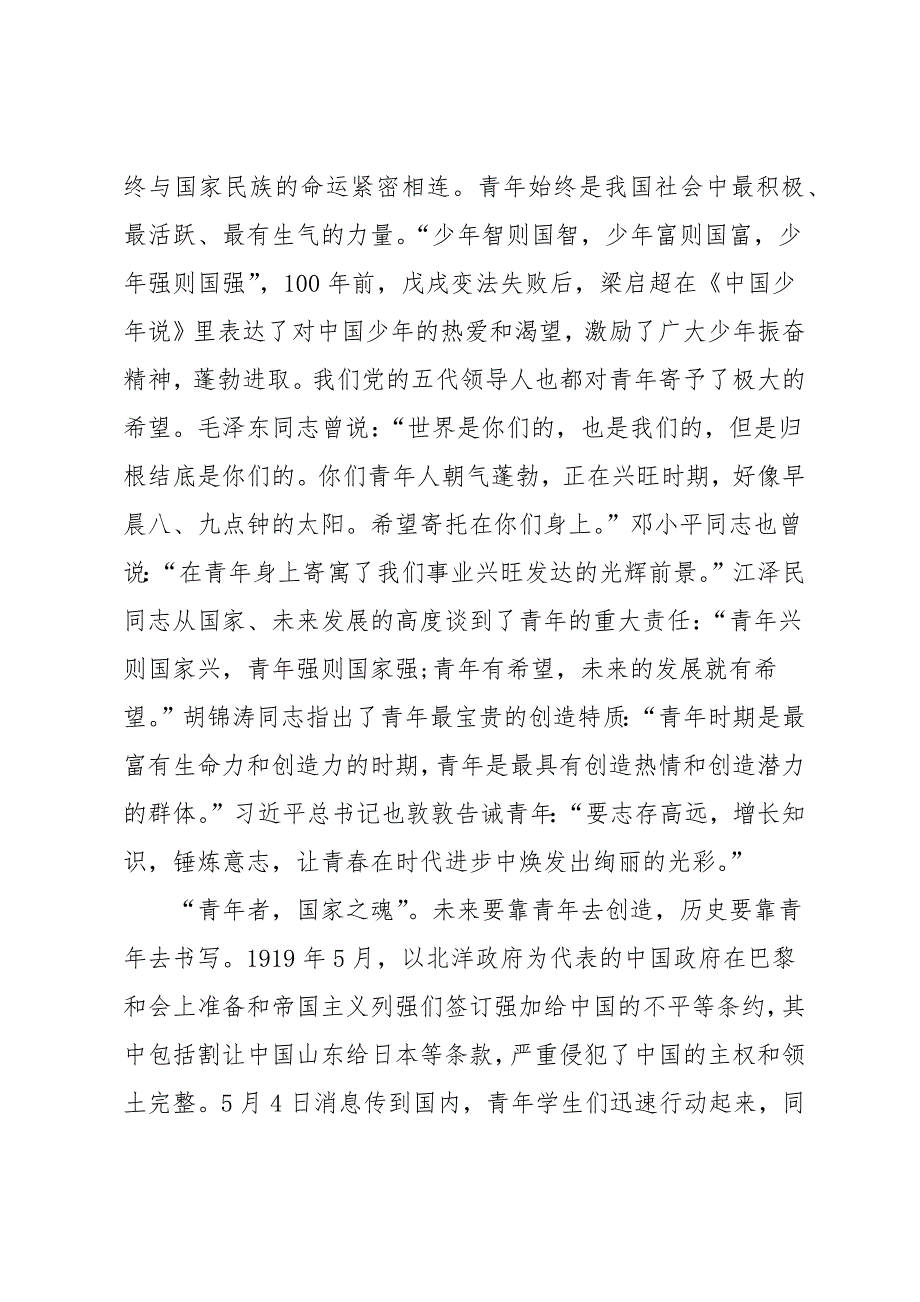 终与国家民族的命运紧密相连。青年始终是我国社会中最积极、
最活跃、最有生气的力量。“少年智则国智，少年富则国富，少
年强则国强”，100 年前，戊戌变法失败后，梁启超在《中国少
年说》里表达了对中国少年的热爱和渴望，激励了广大少年振奋
精神，蓬勃进取。我们党的五代领导人也都对青年寄予了极大的
希望。毛泽东同志曾说：“世界是你们的，也是我们的，但是归
根结底是你们的。你们青年人朝气蓬勃，正在兴旺时期，好像早
晨八、九点钟的太阳。希望寄托在你们身上。”邓小平同志也曾
说：“在青年身上寄寓了我们事业兴旺发达的光辉前景。”江泽民
同志从国家、未来发展的高度谈到了青年的重大责任：“青年兴
则国家兴，青年强则国家强;青年有希望，未来的发展就有希
望。”胡锦涛同志指出了青年最宝贵的创造特质：“青年时期是最
富有生命力和创造力的时期，青年是最具有创造热情和创造潜力
的群体。”习近平总书记也敦敦告诫青年：“要志存高远，增长知
识，锤炼意志，让青春在时代进步中焕发出绚丽的光彩。”
“青年者，国家之魂”。未来要靠青年去创造，历史要靠青
年去书写。1919 年 5 月，以北洋政府为代表的中国政府在巴黎
和会上准备和帝国主义列强们签订强加给中国的不平等条约，其
中包括割让中国山东给日本等条款，严重侵犯了中国的主权和领
土完整。5 月 4 日消息传到国内，青年学生们迅速行动起来，同